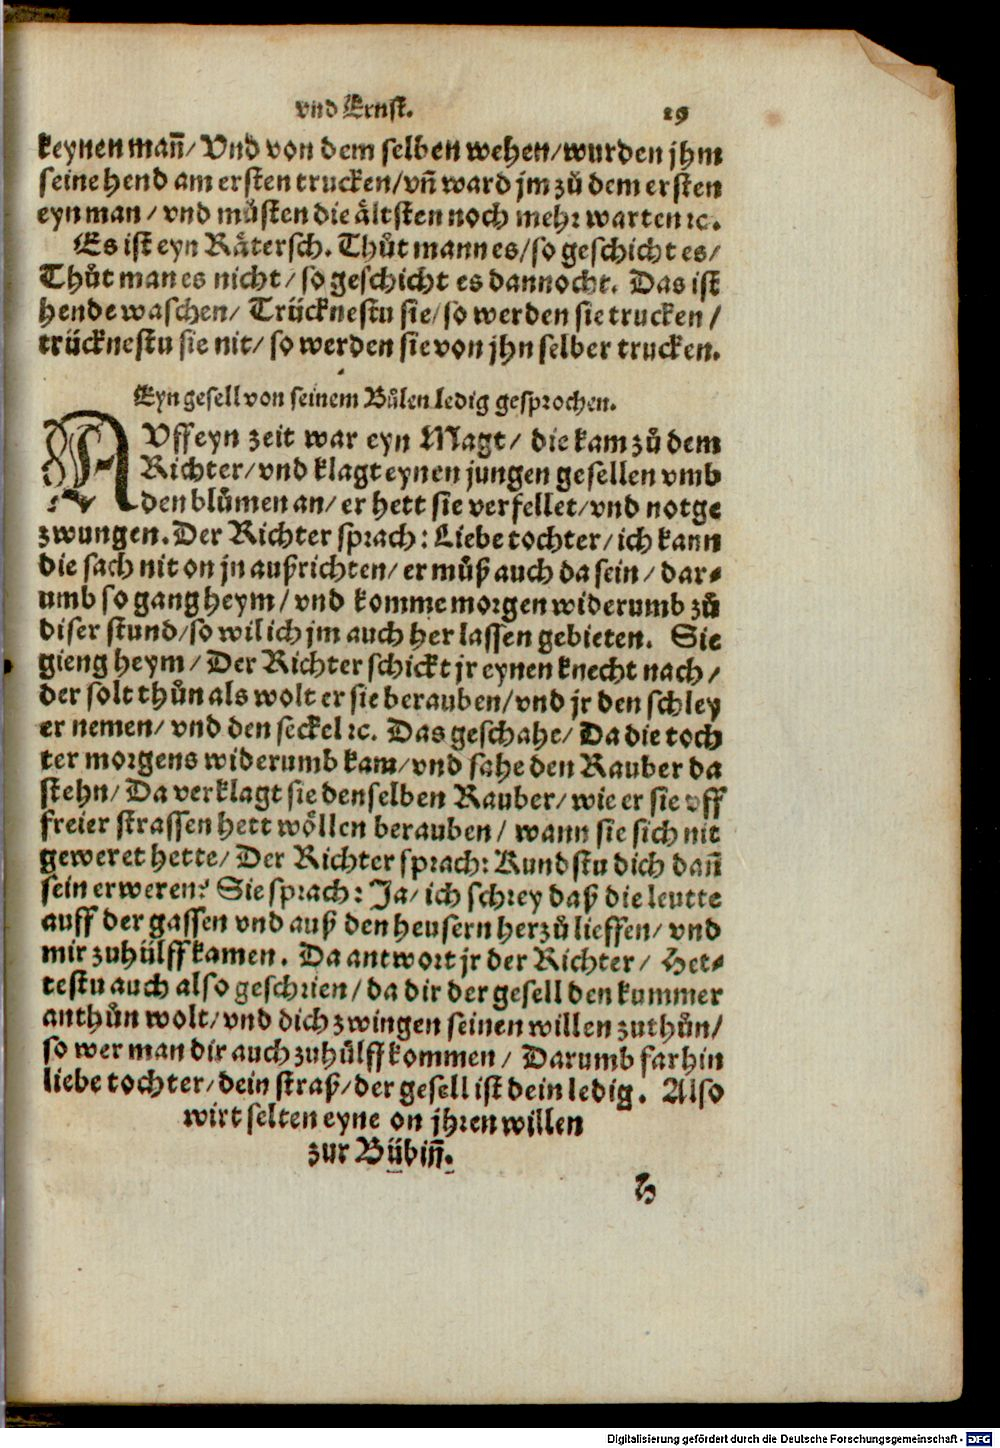 vnd Ernst. 19
keynen mañ/ Vnd von dem selben wehen/wurden jhm
seine hend am ersten trucken/vñ ward jm zů dem ersten
eyn man / vnd můsten die ältsten noch mehr warten ꝛc.
Es ist eyn Rätersch. Thůt mann es/so geschicht es/
Thůt man es nicht/ so geschicht es dannocht. Das ist
hende waschen/ Trücknestu sie/so werden sie trucken/
trücknestu sie nit/ so werden sie von jhn selber trucken.
Eyn gesell von seinem Bůlen ledig gesprochen.
AUff eyn zeit war eyn Magt/ die kam zů dem
Richter/vnd klagt eynen jungen gesellen vmb
den blůmen an/ er hett sie verfellet/vnd notge
zwungen. Der Richter sprach: Liebe tochter/ich kann
die sach nit on jn außrichten/ er můß auch da sein/ dar⸗
umb so gang heym/ vnd komme morgen widerumb zů
diser stund/so wil ich jm auch her lassen gebieten. Sie
gieng heym/ Der Richter schickt jr eynen knecht nach/
der solt thůn als wolt er sie berauben/vnd jr den schley
er nemen/ vnd den seckel ꝛc. Das geschahe/ Da die toch
ter morgens widerumb kam/vnd sahe den Rauber da
stehn/ Da verklagt sie denselben Rauber/ wie er sie vff
freier strassen hett wöllen berauben/ wann sie sich nit
geweret hette/ Der Richter sprach: Kundstu dich dañ
sein erweren? Sie sprach: Ja/ ich schrey daß die leutte
auff der gassen vnd auß den heusern herzů lieffen/ vnd
mir zuhülff kamen. Da antwort jr der Richter/ Het⸗
testu auch also geschrien/ da dir der gesell den kummer
anthůn wolt/vnd dich zwingen seinen willen zuthůn/
so wer man dir auch zuhülff kommen/ Darumb farhin
liebe tochter/dein straß/der gesell ist dein ledig. Also
wirt selten eyne on jhren willen
zur Bübiñ.
Digitalisierung gefördert durch die Deutsche Forschungsgemeinschaft - DFG